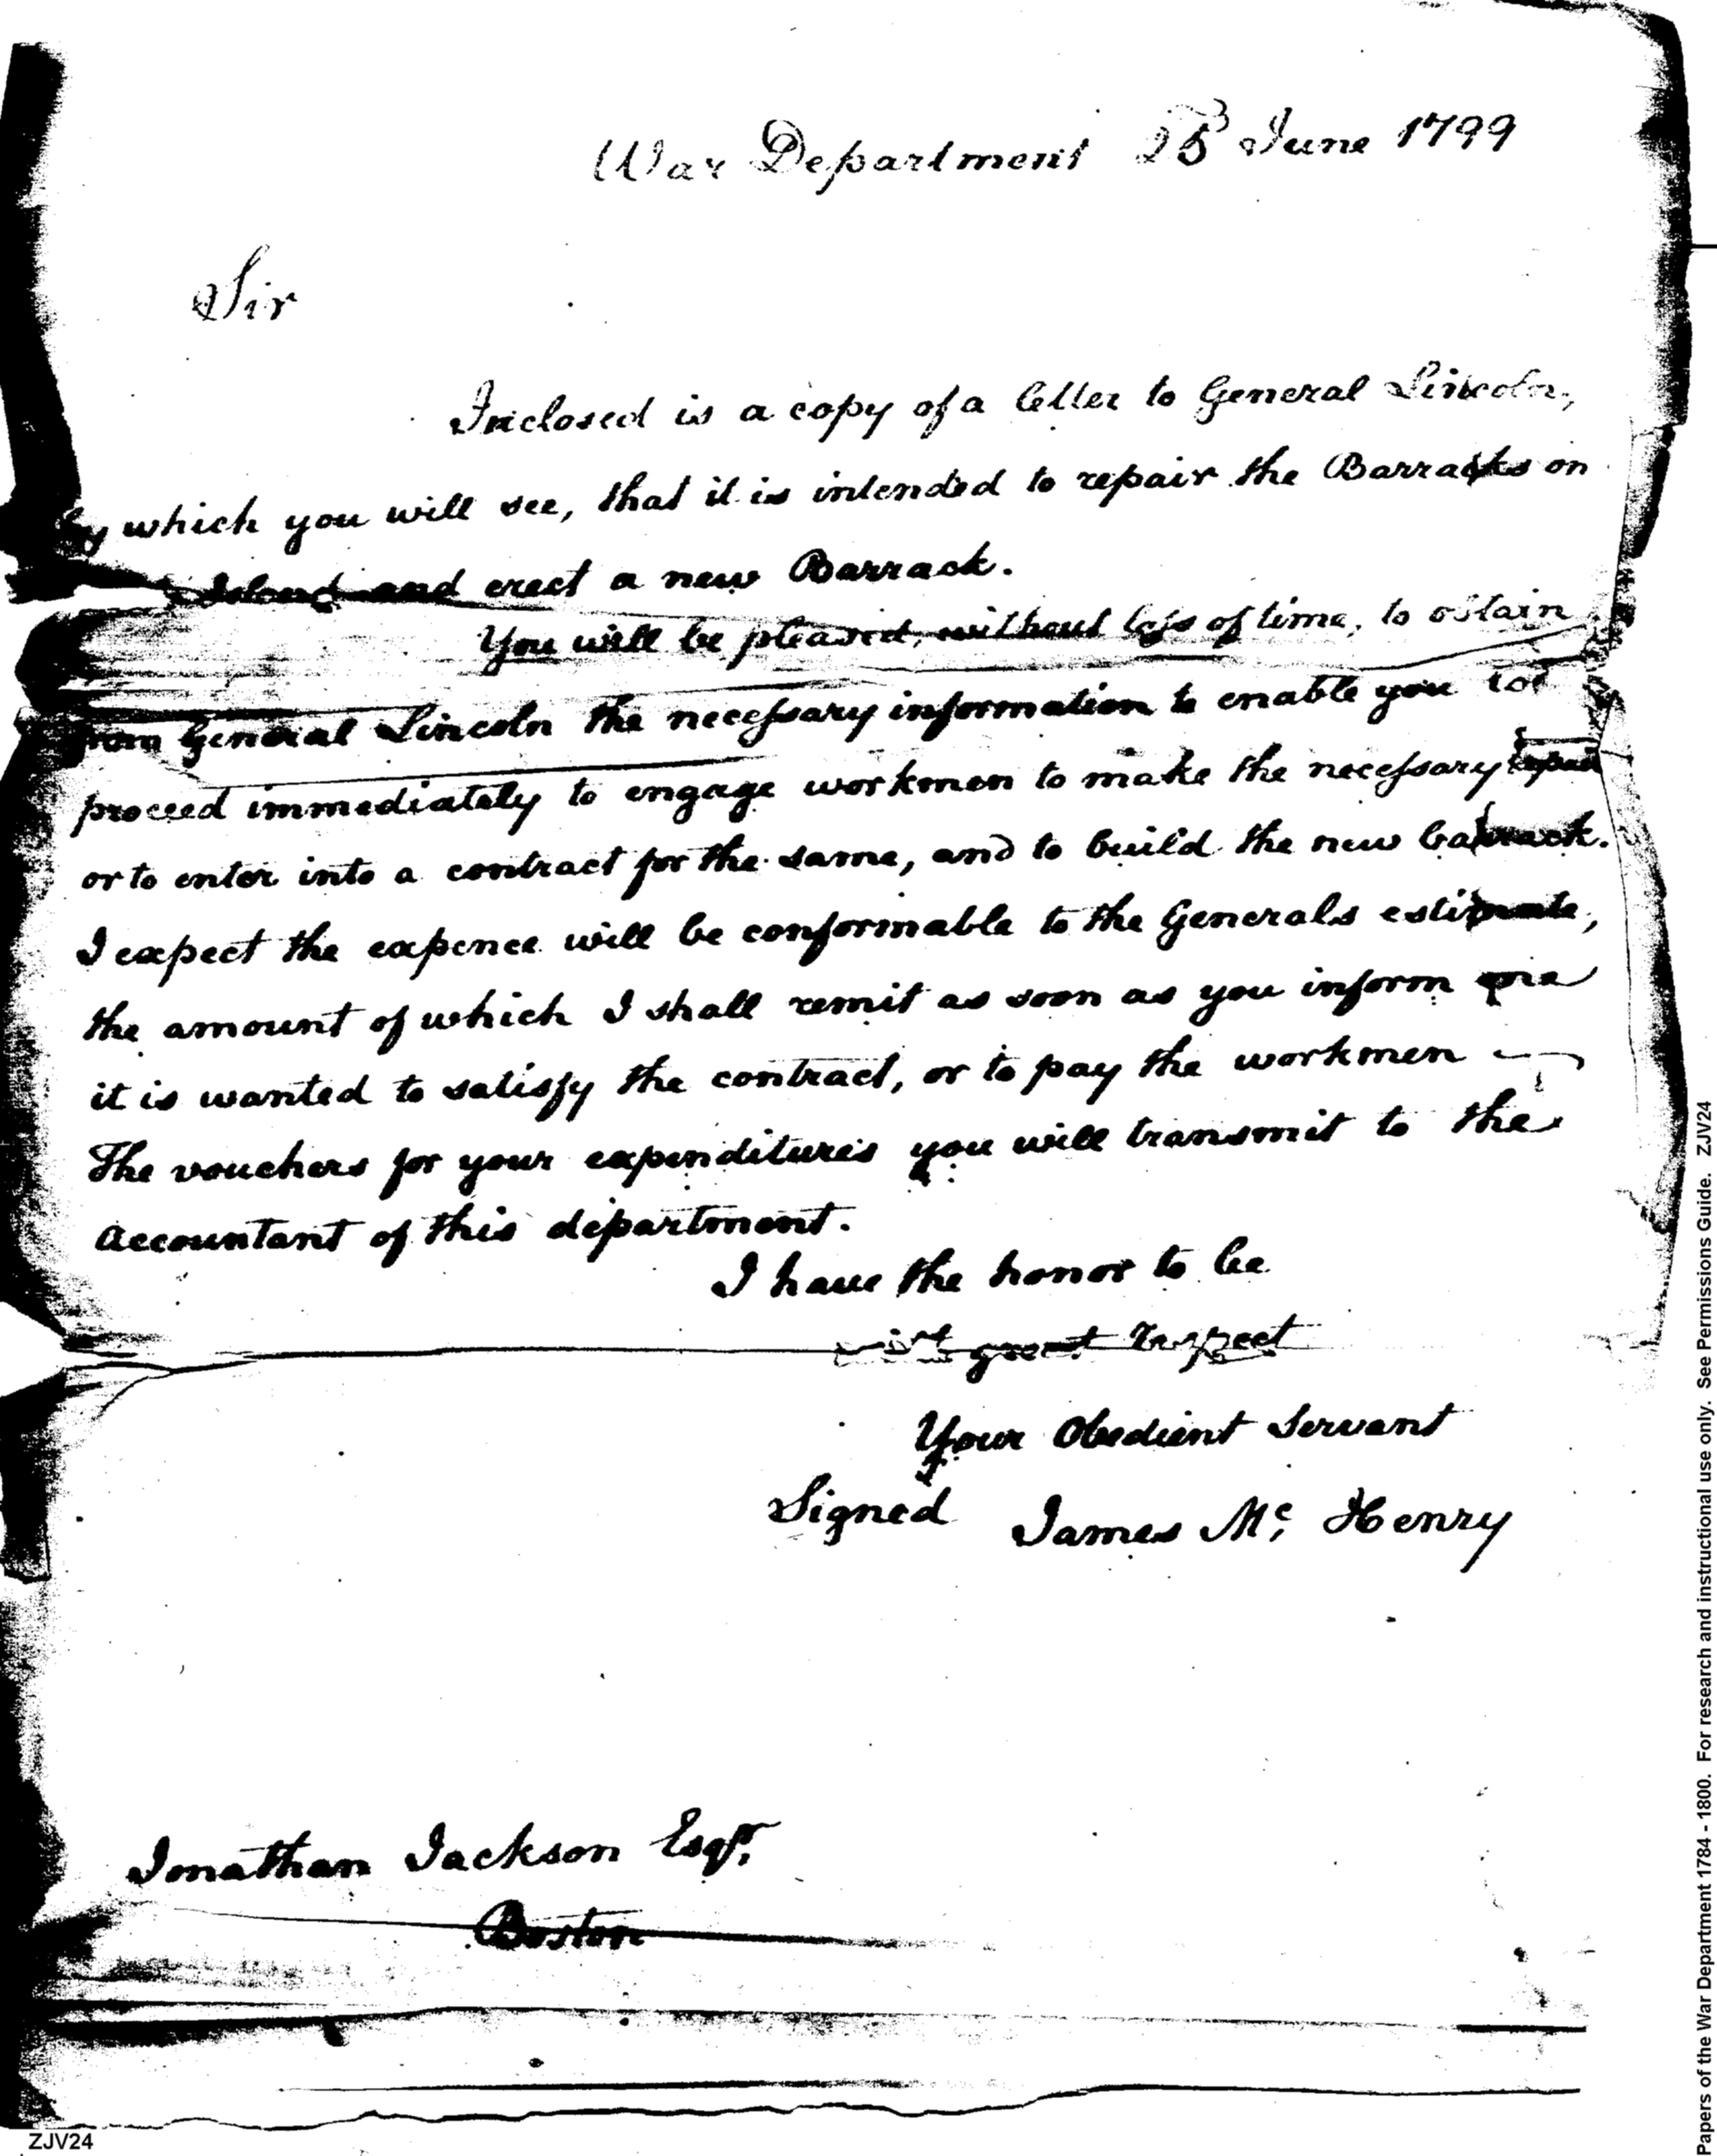 War Department 25 June 1799
Sir
Inclosed is a copy of a letter to General Lincoln,
by which you will see, that it is intended to repair the Barracks on
Island and erect a new Barrack.
You will be pleased, without loss of time, to obtain
from General Lincoln the necessary information to enable you to
proceed immediately to engage workmen to make the necessary
or to enter into a contract for the same, and to build the new barrack.
I expect the expence will be conformable to the Generals estimate,
the amount of which I shall remit as soon as you inform me
it is wanted to satisfy the contract, or to pay the workmen —
The vouchers for your expenditures you will transmit to the
Accountant of this department.
I have the honor to be
with great respect
Your Obedient Servant
Signed James Mc Henry
Jonathan Jackson Esqr.
Boston
ZJV24
Papers of the War Department 1784 - 1800. For research and instructional use only. See Permissions Guide. ZJV24